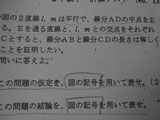 の図の2直線l，mは平行で，線分ADの中点をE
る。Eを通る直線と，l，mとの交点をそれぞれ
Cとすると，線分ABと線分CDの長さは等しく
とを証明したい。
問いに答えよ。
この問題の仮定を，図の記号を用いて表せ。
この問題の結論を，図の記号を用いて表せ。